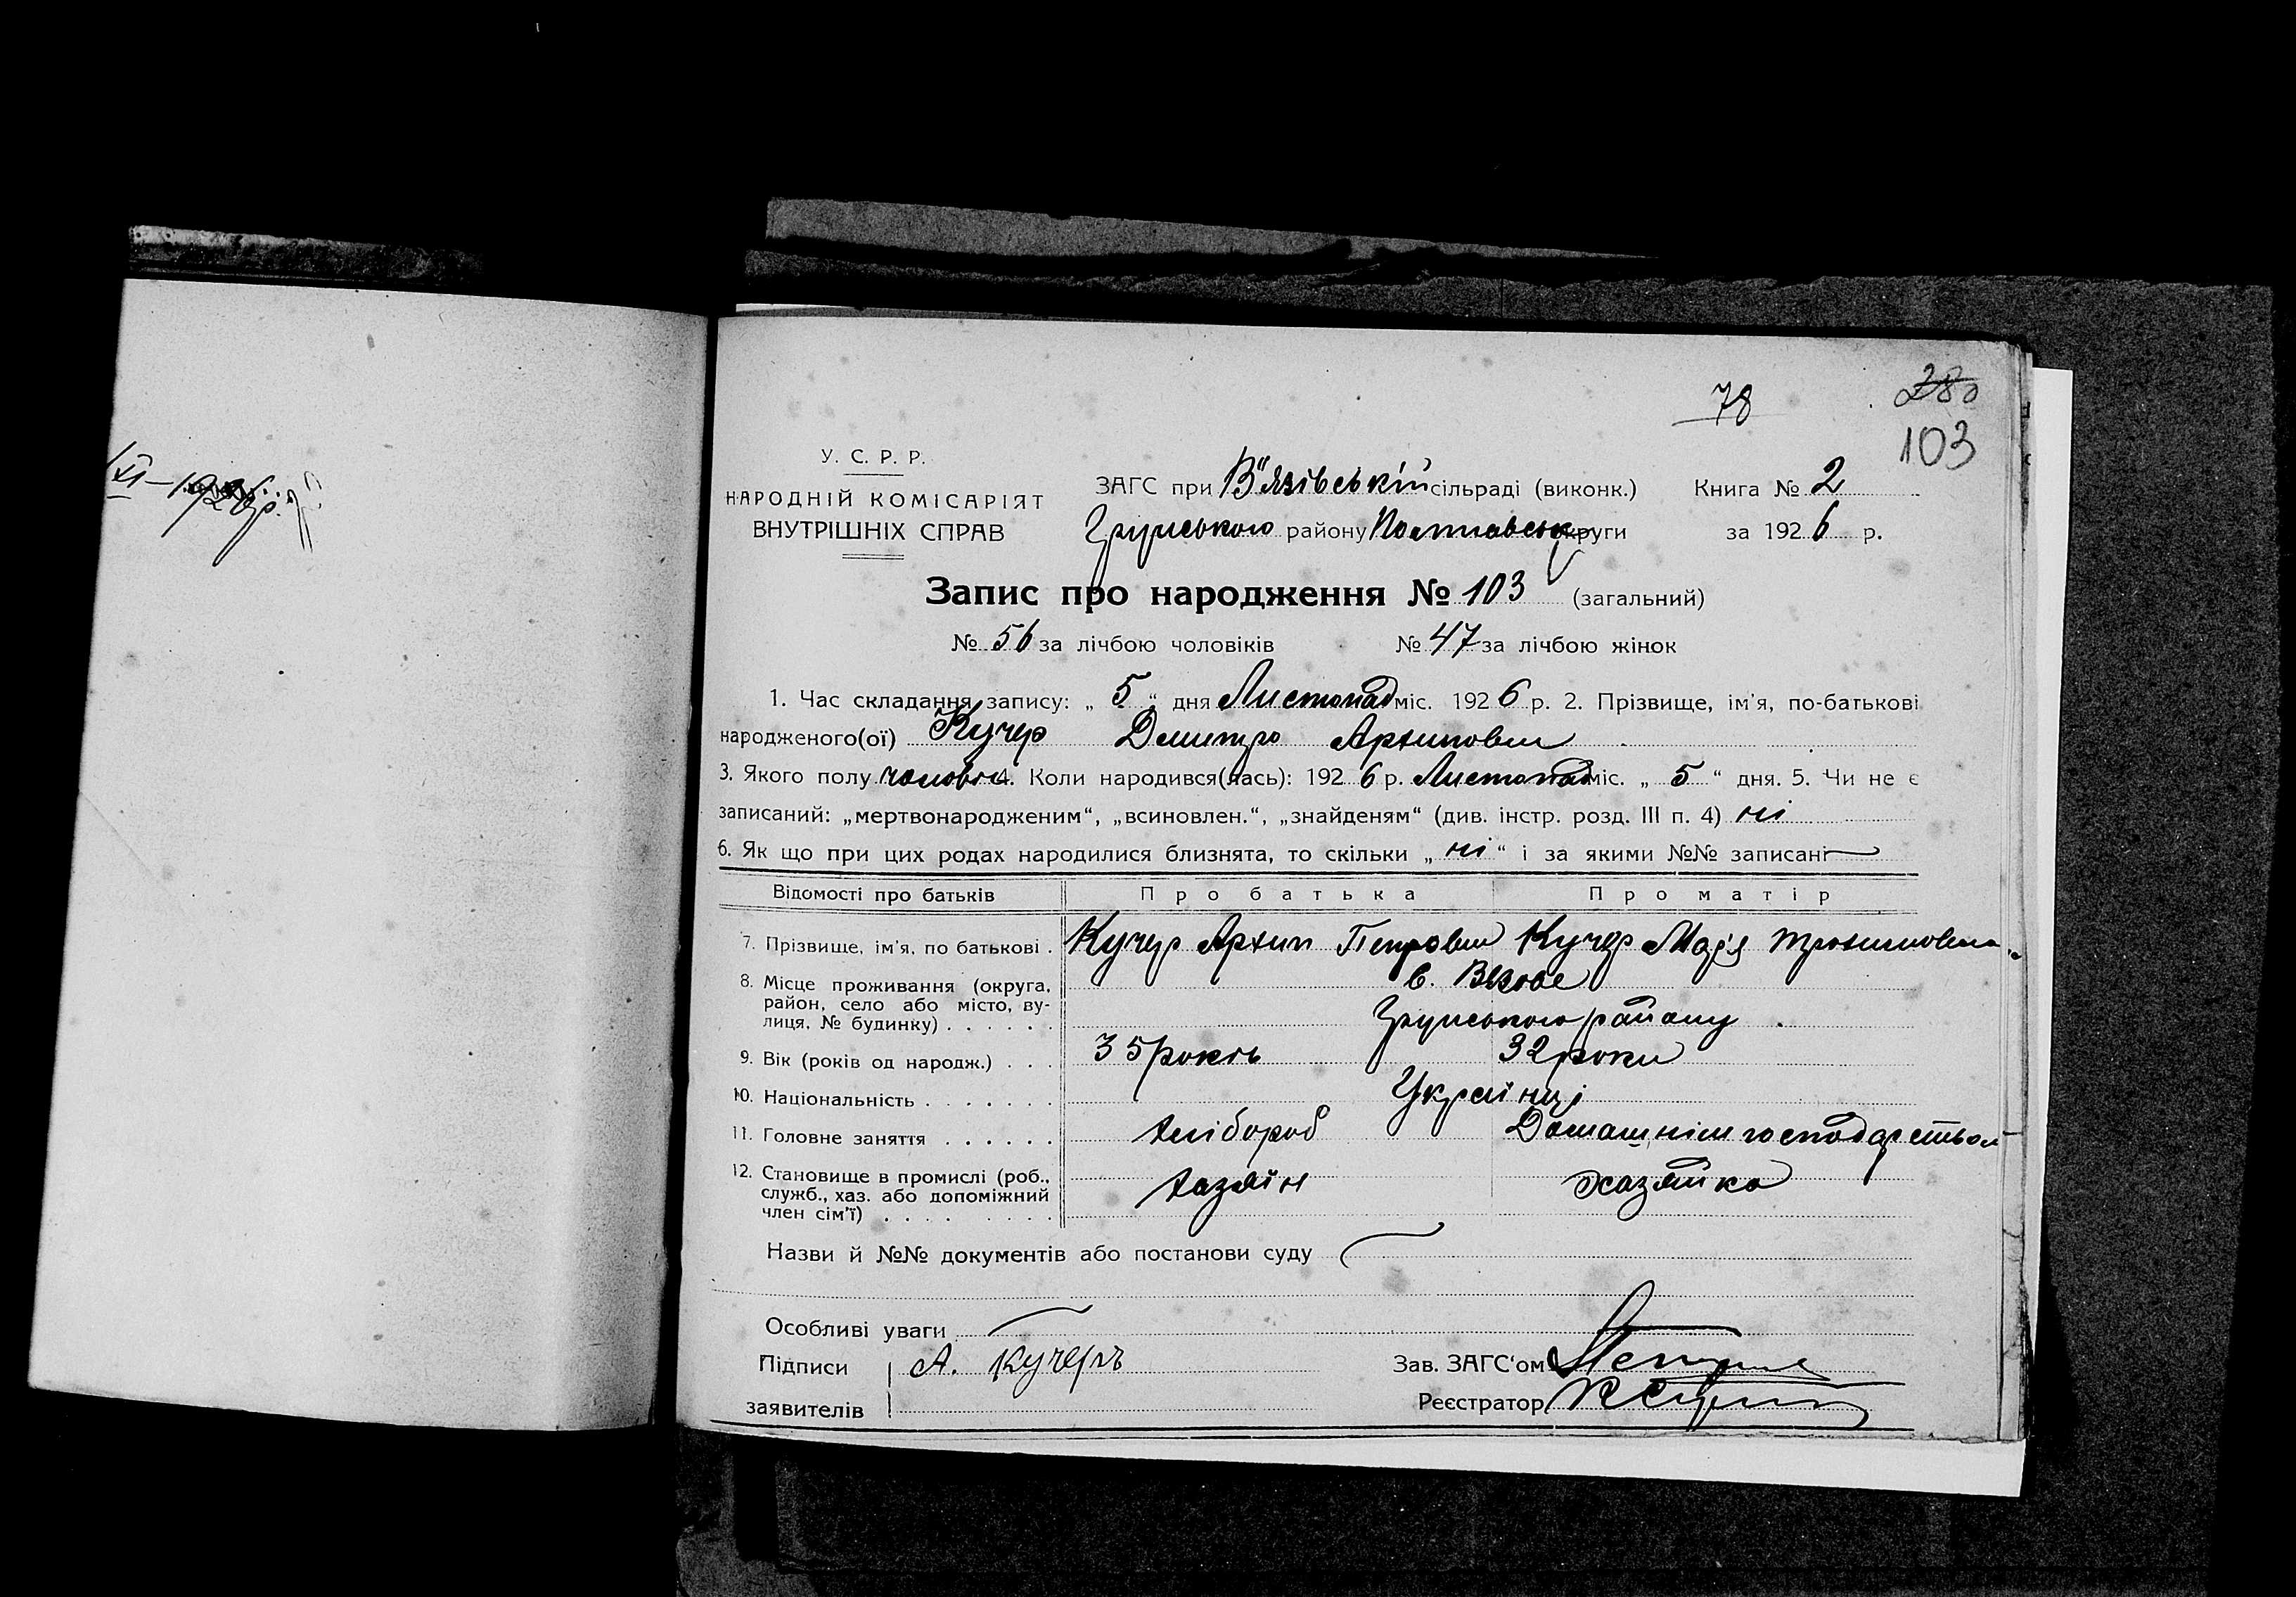 78
280
103
XI – 1926 р.
У. С. Р. Р.
НАРОДНІЙ КОМІСАРІЯТ
ВНУТРІШНІХ СПРАВ
ЗАГС при В'язівській сільраді (виконк.) Книга № 2
Грунського району Полтавськ округи за 1926 р.
Запис про народження № 103 (загальний)
№ 56 за лічбою чоловіків № 47 за лічбою жінок
1. Час складання запису: „ 5 “ дня Листопад міс. 1926 р. 2. Прізвище, ім'я, по-батькові
народженого(ої) Кучер Дмитро Архипович
3. Якого полу чоловіч 4. Коли народився(лась): 1926 р. Листопад міс. „ 5 “ дня. 5. Чи не є
записаний: „мертвонародженим“, „всиновлен.“, „знайденям“ (див. інстр. розд. III п. 4) ні
6. Як що при цих родах народилися близнята, то скільки „ ні “ і за якими №№ записані —
Відомості про батьків Про батька Про матір
7. Прізвище, ім'я, по батькові . Кучер Архип Петрович Кучер Мар'я Трохимовна
8. Місце проживання (округа, с. Вязове
район, село або місто, ву-
лиця, № будинку) . . . . . . Грунського району
9. Вік (років од народж.) . . . 35 років 32 роки
10. Національність . . . . . . . Українці
11. Головне заняття . . . . . . хлібороб Домашнім господарством
12. Становище в промислі (роб., хазяїн хазяйка
служб., хаз. або допоміжний
член сім'ї) . . . . . . . .
Назви й №№ документів або постанови суду —
Особливі уваги —
Підписи А. Кучеръ Зав. ЗАГС'ом
заявителів Реєстратор